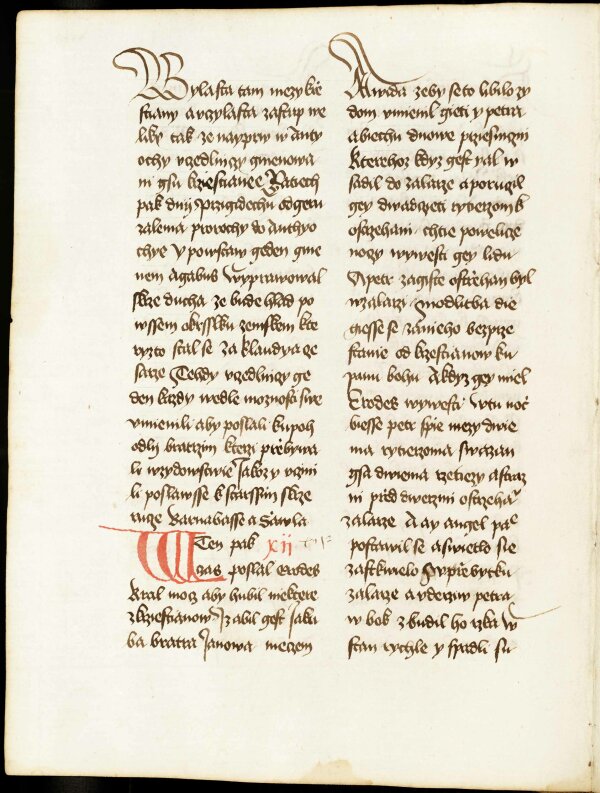 Bylasta tam mezy krze
sstiany a vczylasta zastup we
liky tak ze nayprw w Anty
ochy vczedlnyczy gmenowa
ni gsu krzestiane Natiech
pak dnij Przigidechu odgeru
zalema prorochy do Anthyo
chye Y powstaw geden gme
nem Agabus Wyprawowal
skrze ducha ze bude hlad po
wssem okrsslku zemskem kte
ryzto stal se za klaudya ce
sarze Tehdy vczedlnyczy ge
den kazdy wedle moznosti swe
vmienili aby poslali kupoh
odly bratrzim kterzi przebywa
li wzydowstwie Jakoz y vczini
li poslawsse k starssim skrze
rucze Barnabasse a Sawla
WTen pak xii
czas poslal erodes
kral mocz aby hubil niektere
z krzestianow Jzabil gest Jaku
ba bratra Janowa meczem
A wida zeby se to libilo zy
dom vmienil gieti y petra
a biechu dnowe przesnyczni
kterehoz kdyz gest yal w
sadil do zalarze a porucził
gey dwadczeti rytierzom k
ostrzehani chtie po welicze
noczy wywesti gey lidu
A petr zagiste ostrzehan byl
w zalarzi modlitba die
giesse se zanieho bezprze
stanie od krzestianow ku
panu bohu A kdyz gey miel
Erodes wywesti w tu nocz
biesse petr spie mezy dwie
ma rytierzoma swazan
gsa dwiema rzetiezy a straz
ni przed dwerzmi ostrzeha
zalarze A ay angel pa
postawil se a swietlo sie
zastkwielo w przibytku
zalarze a vderziw petra
w bok zbudil ho rzka W
stan rychle y spadli su